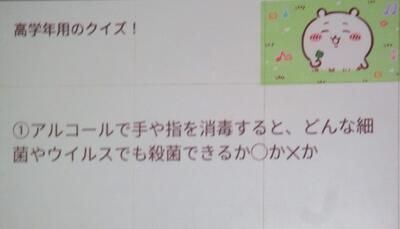 高学年用のクイズ！
①アルコールで手や指を消毒すると、どんな細
菌やウイルスでも殺菌できるか◯か✕か